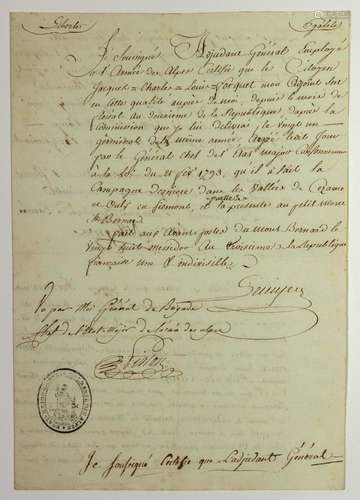 Liberté Egalité
Je Soussigné Adjudant Général Employé
à l'Armée des Alpes Certifie que le Citoyen
Jacques Charles Louis mon Adjoint Sert
en cette qualité auprès de moi, depuis le mois de
floreal an deuxieme de la Republique, d'après la
Commission que j'lui delivrai le vingt un
germinal même année,
par le Général chef des Etat Major Conformement
à la Loi du 21 fév 1793, qu'il a fait la
Campagne derniere dans les Vallées de Cezanne
et Oulx en Piemont, et la presente au petit
St Bernard
fait aux Avant postes du Mont Bernard le
Vingt huit Messidor an troisieme de la Republique
française une & indivisible.
Vu par Moi Général de Brigade
Chef de l'Etat Major de l'armée des alpes
Je soussigné Certifie que L'adjudant Général